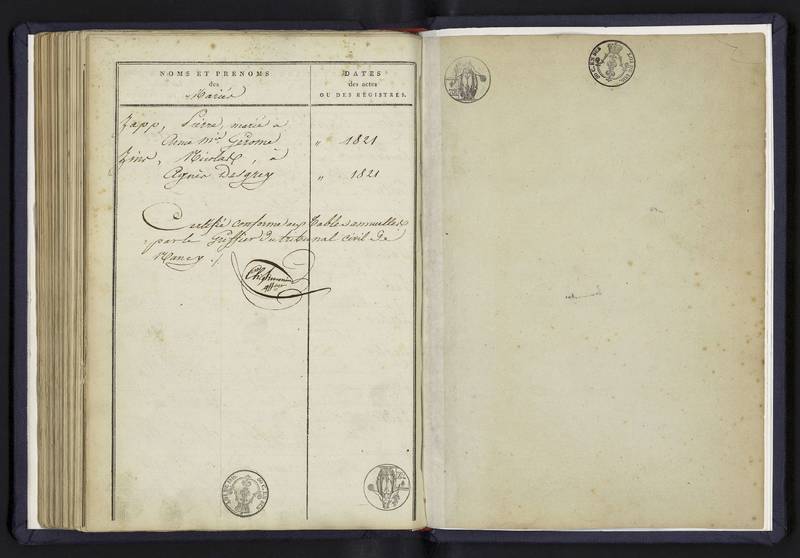 NOMS ET PRENOMS
des
Mariés
DATES
des actes
OU DES REGISTRES.
Zapp, Pierre, marié à
Anne Mie Gérome " 1821
Zins, Nicolas, à
Agnès Desgrey " 1821
Certifié conforme aux Tables annuelles
par le Greffier du tribunal civil de
Nancy ./.